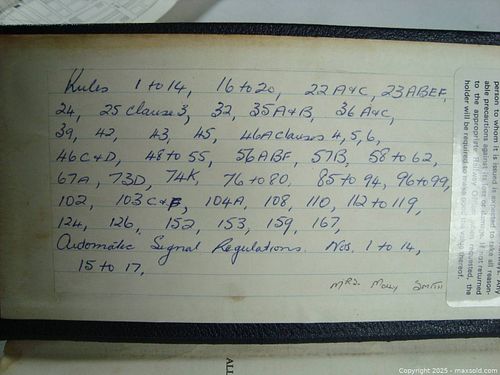 Rules 1 to 14, 16 to 20, 22 A&C, 23 ABEF,
24, 25 clause 3, 32, 35 A&B, 36 A&C,
39, 42, 43, 45, 46A clauses 4, 5, 6,
46 C&D, 48 to 55, 56 ABF, 57B, 58 to 62,
67A, 73D, 74K, 76 to 80, 85 to 94, 96 to 99,
102, 103 C&F, 104A, 108, 110, 112 to 119,
124, 126, 152, 153, 159, 167,
Automatic Signal Regulations. Nos. 1 to 14,
15 to 17,
Mrs. Molly Smith
person to whom it is issued is expected to take all reason-
able precautions against
holder will be required to
Copyright 2025 - maxsold.com